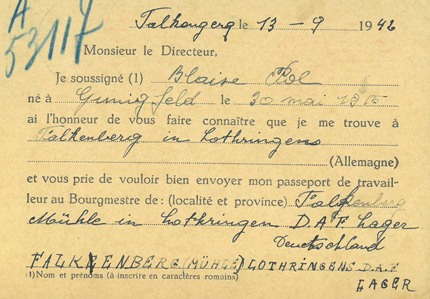 A
53117
Falkengerg le 13 - 9 1942
Monsieur le Directeur,
Je soussigné (1) Blaise Pol
né à Gunigfeld le 30 mai 1915
ai l'honneur de vous faire connaître que je me trouve à
Falkenberg in Lothringens
(Allemagne)
et vous prie de vouloir bien envoyer mon passeport de travail-
leur au Bourgmestre de : (localité et province) Falkenberg
Mühle in Lothringen D.A.F. Lager
Deutschland
FALKENBERG (MÜHLE) LOTHRINGENS D.A.F.
LAGER
(1) Nom et prénoms (à inscrire en caractères romains)